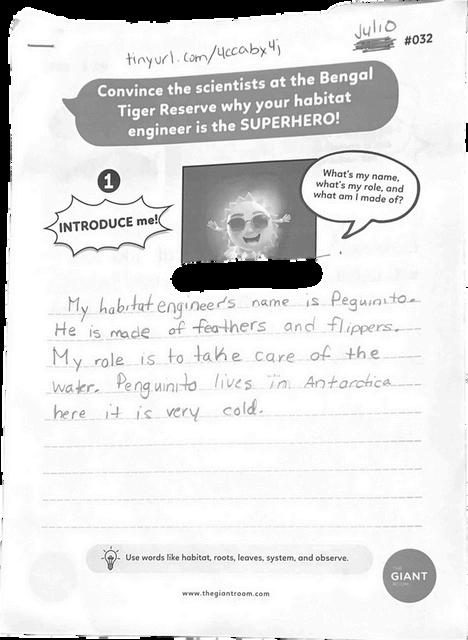 Julio
#032
tinyurl.com/4ccabx4j
Convince the scientists at the Bengal
Tiger Reserve why your habitat
engineer is the SUPERHERO!
1
INTRODUCE me!
What's my name,
what's my role, and
what am I made of?
My habitat engineer's name is Peguinito.
He is made of feathers and flippers.
My role is to take care of the
water. Penguinito lives in Antarctica
here it is very cold.
Use words like habitat, roots, leaves, system, and observe.
www.thegiantroom.com
THE
GIANT
ROOM